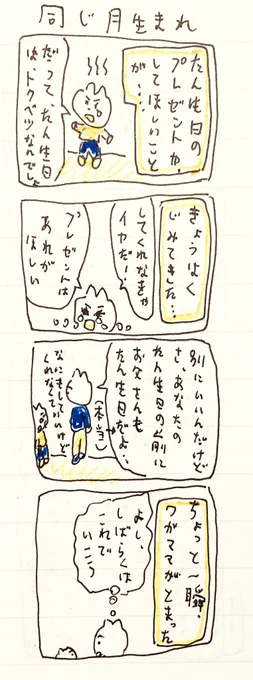 同じ月生まれ
たん生日の
プレゼントや、
してほしいこと
が…
だって、たん生日
はトクベツなんでしょ
きょうはく
じみてきた…
してくれなきゃ
イヤだー
プレゼントは
あれが
ほしい
別にいいんだけど
さ、あなたの
たん生日の1ヶ月前に
お父さんも
たん生日だよ…
(本当)
なにもしていいけど
くれなくて
ちょっと一瞬、
ワガママがとまった
よし、
しばらくは
これで
いこう